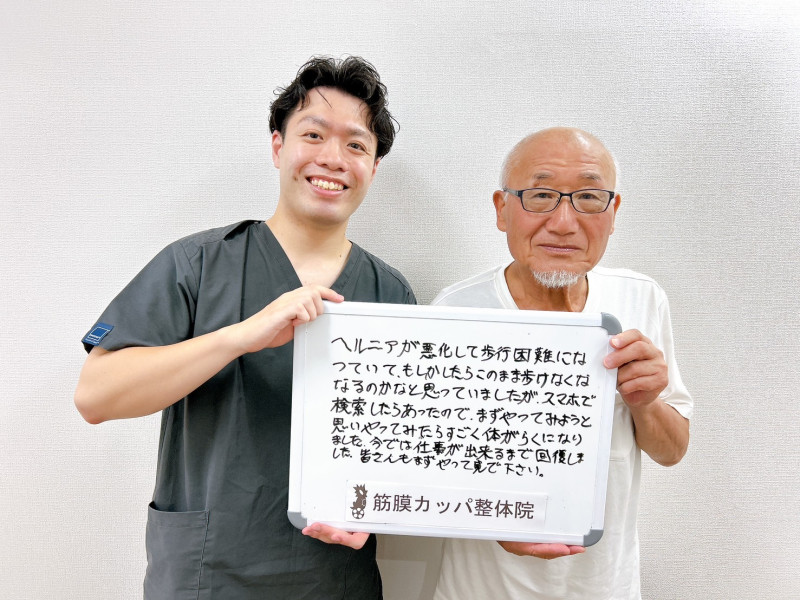 ヘルニアが悪化して歩行困難にな
っていて、もしかしたらこのまま歩けなくな
なるのかなと思っていましたが、スマホで
検索したらあったので、まずやってみようと
思いやってみたらすごく体がらくになり
ました。今では仕事が出来るまで回復しま
した。皆さんもまずやって見て下さい。
筋膜カッパ整体院